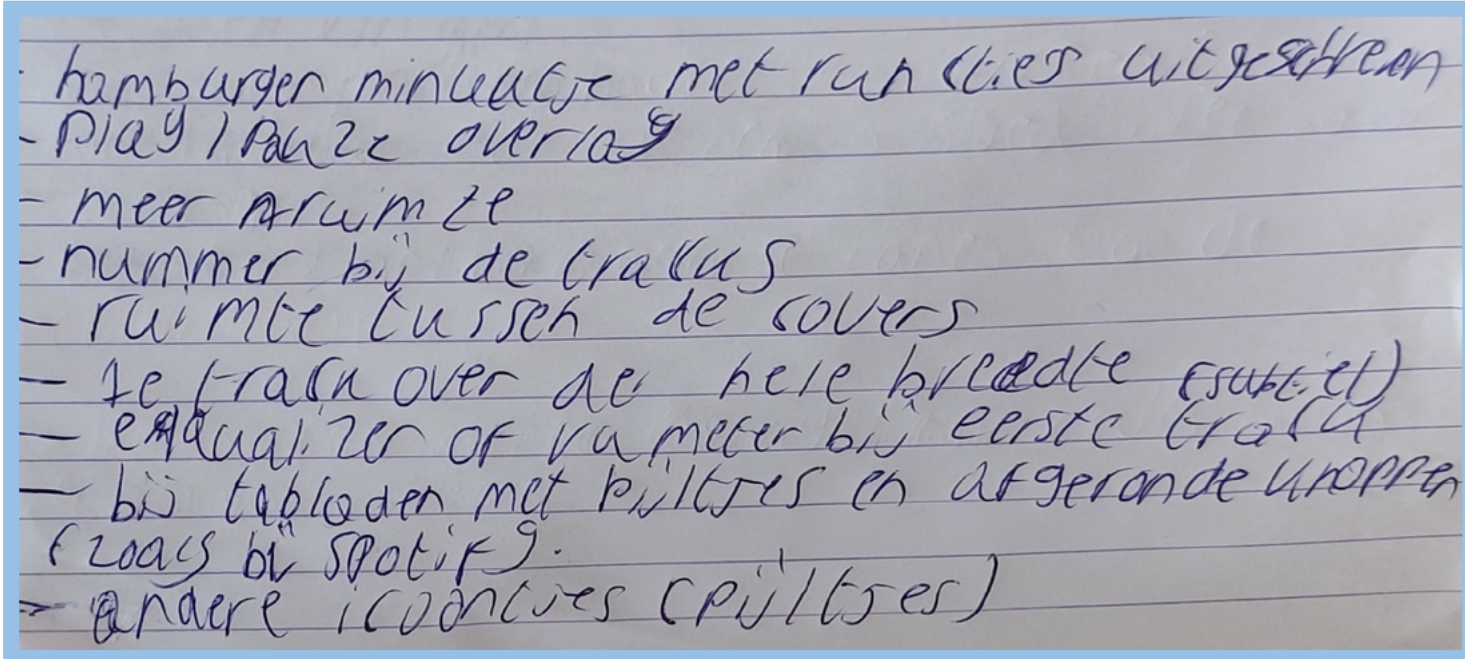 - hamburger minuatje met functies uitgeschreven
- Play / Pauze overlay
- meer ruimte
- nummer bij de tracks
- ruimte tussen de covers
- 1e track over de hele breedte (subtiel)
- eqqualizer of vu meter bij eerste track
- bij tabladen met pijltjes en afgeronde knoppen
(zoals bij spotify.
- andere icoontjes (pijltjes)